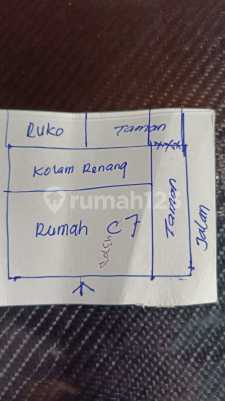 Ruko
Taman
Kolam Renang
rumah123
Rumah C7
Taman
Jalan